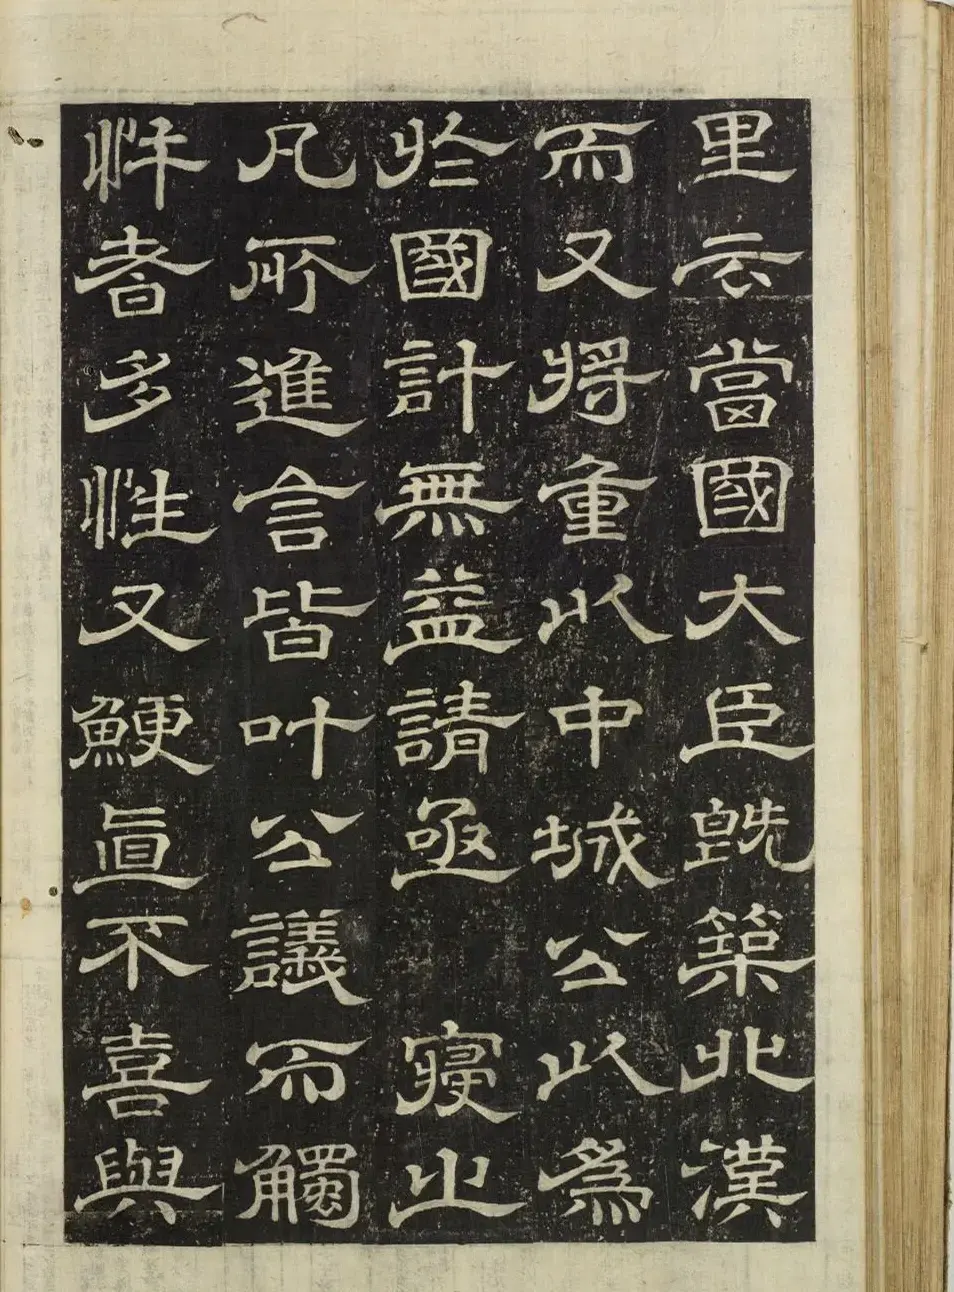 里云當國大臣旣築北漢
而又將重以中城公以為
於國計無益請亟寢之
凡所進言皆叶公議而觸
忤者多性又鯁直不喜與